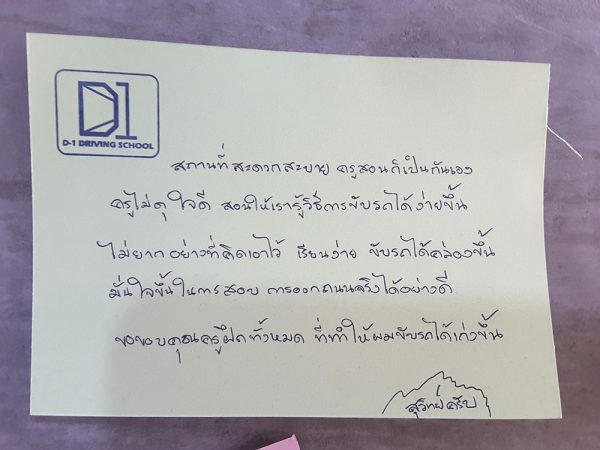 D1
D-1 DRIVING SCHOOL
สถานที่สะดวกสะบาย ครูสอนก็เป็นกันเอง
ครูไม่ดุ ใจดี สอนให้เรารู้วิธีการขับรถได้ง่ายขึ้น
ไม่ยากอย่างที่คิดเอาไว้ เรียนง่าย ขับรถได้คล่องขึ้น
มั่นใจขึ้นในการสอบ การออกถนนจริงได้อย่างดี
ขอขอบคุณครูฝึกทั้งหมด ที่ทำให้ผมขับรถได้เก่งขึ้น
สุวิทย์ครับ